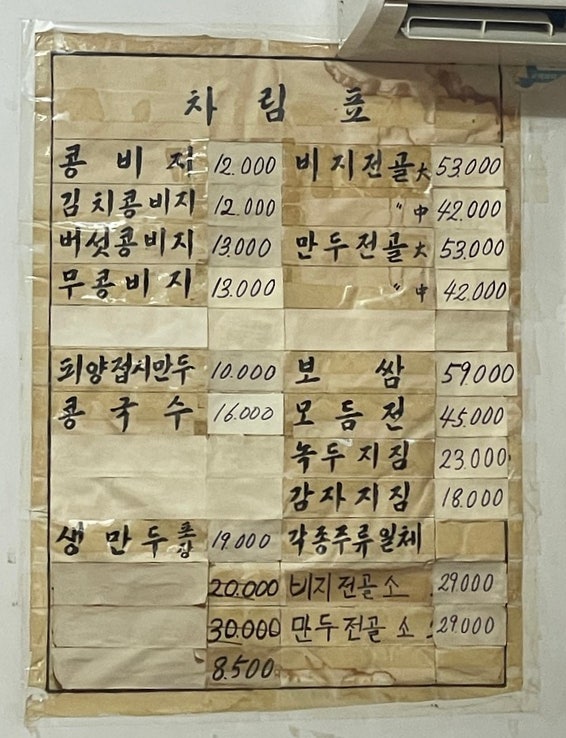 차림표
콩비지 12.000 비지전골大 53.000
김치콩비지 12.000 〃 中 42.000
버섯콩비지 13.000 만두전골大 53.000
무콩비지 13.000 〃 中 42.000
피양접시만두 10.000 보쌈 59.000
콩국수 16.000 모듬전 45.000
녹두지짐 23.000
감자지짐 18.000
생만두포장 19.000 각종주류일체
20.000 비지전골 소 29.000
30.000 만두전골 소 29.000
8.500